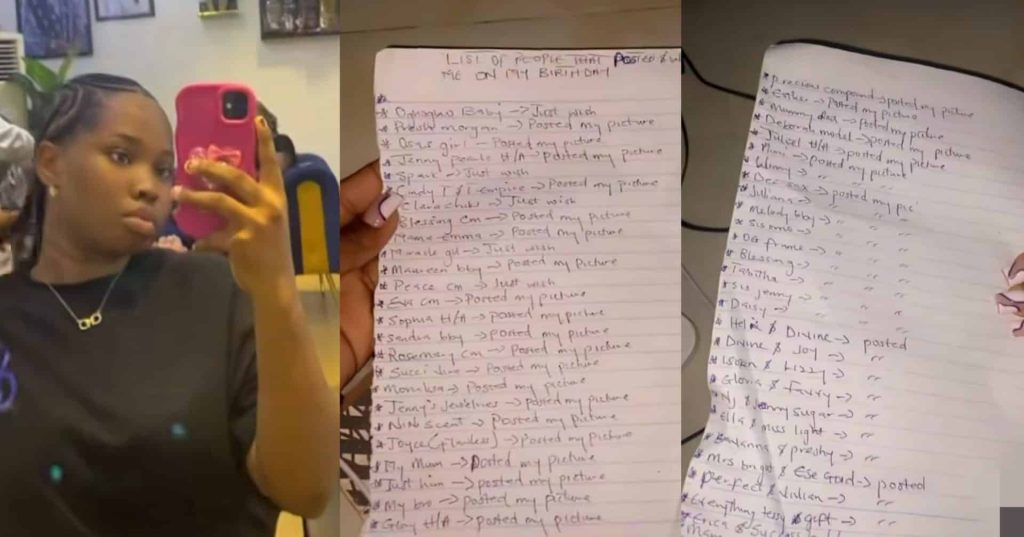 LIST OF PEOPLE THAT POSTED & W
ME ON MY BIRTHDAY
* Baby → Just wish
* Presh morgan → Posted my picture
* Osas girl → Posted my picture
* Jenny pearls H/A → Posted my picture
* Spari → Just wish
* Cindy T & L Empire → Posted my picture
* Clara chiks → Just wish
* Blessing cm → Posted my picture
* Mama emma → Posted my picture
* Miracle gil → Just wish
* Maureen bby → Posted my picture
* Peace cm → Just wish
* Eva cm → Posted my picture
* Sophia H/A → posted my picture
* Sandra bby → posted my picture
* Rosemary cm → Posted my picture
* → Posted my picture
* Monica → Posted my picture
* Jenny's Jewelries → posted my picture
* NiNiscent → Posted my picture
* Joyce (flawless) → Posted my picture
* My Mum → posted my picture
* Just him → posted my picture
* My bro → posted my picture
* Glory H/A → posted my picture
* precious compound → posted my picture
* Esther → Posted my picture
* Mummy dera → posted my picture
* Deborah model → posted my picture
* Juliet H/A → posted my picture
* Mimi → posted my picture
* Winny → " " "
* Dee sax → posted my pic
* Juliana → " " "
* Melody bby → " " "
* sis emo → " " "
* Dee frame → " " "
* Blessing → " " "
* Tabitha → " " "
* sis Jenny → " " "
* Daisy → " " "
* Helix & Divine → posted
* Divine & Joy → "
* & Lizzy → "
* Gloria & favvy → "
* NJ & sugar → "
* Ella & miss light → "
* & preshy → "
* Mrs bright & Ese Gold → posted
* Perfect & Vivian → "
* Everything tessy & gift → "
* Erica &